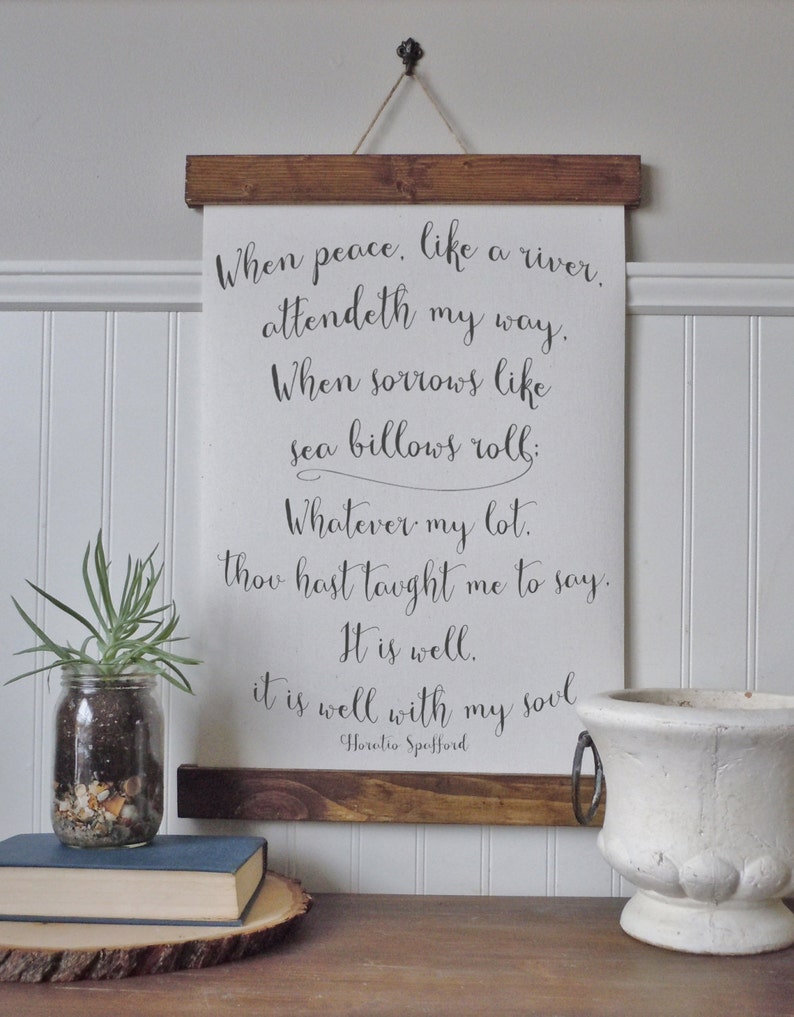 When peace, like a river,
attendeth my way,
When sorrows like
sea billows roll;
Whatever my lot,
thou hast taught me to say,
It is well,
it is well with my soul
Horatio Spafford